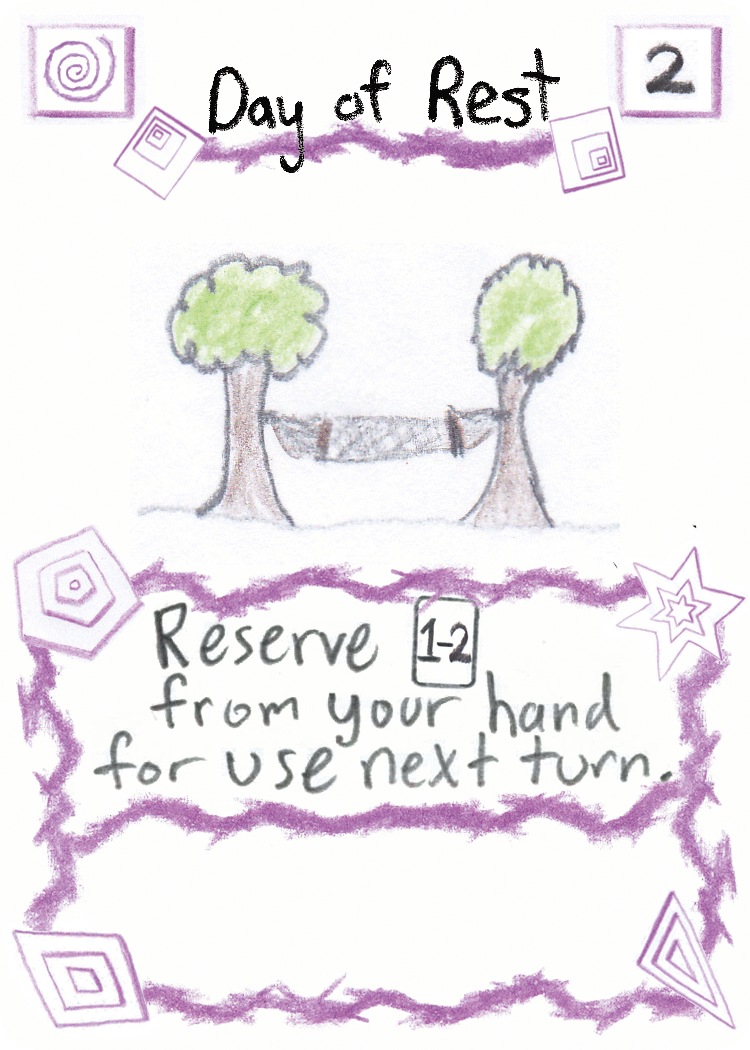 Day of Rest
2
Reserve 1-2
from your hand
for use next turn.